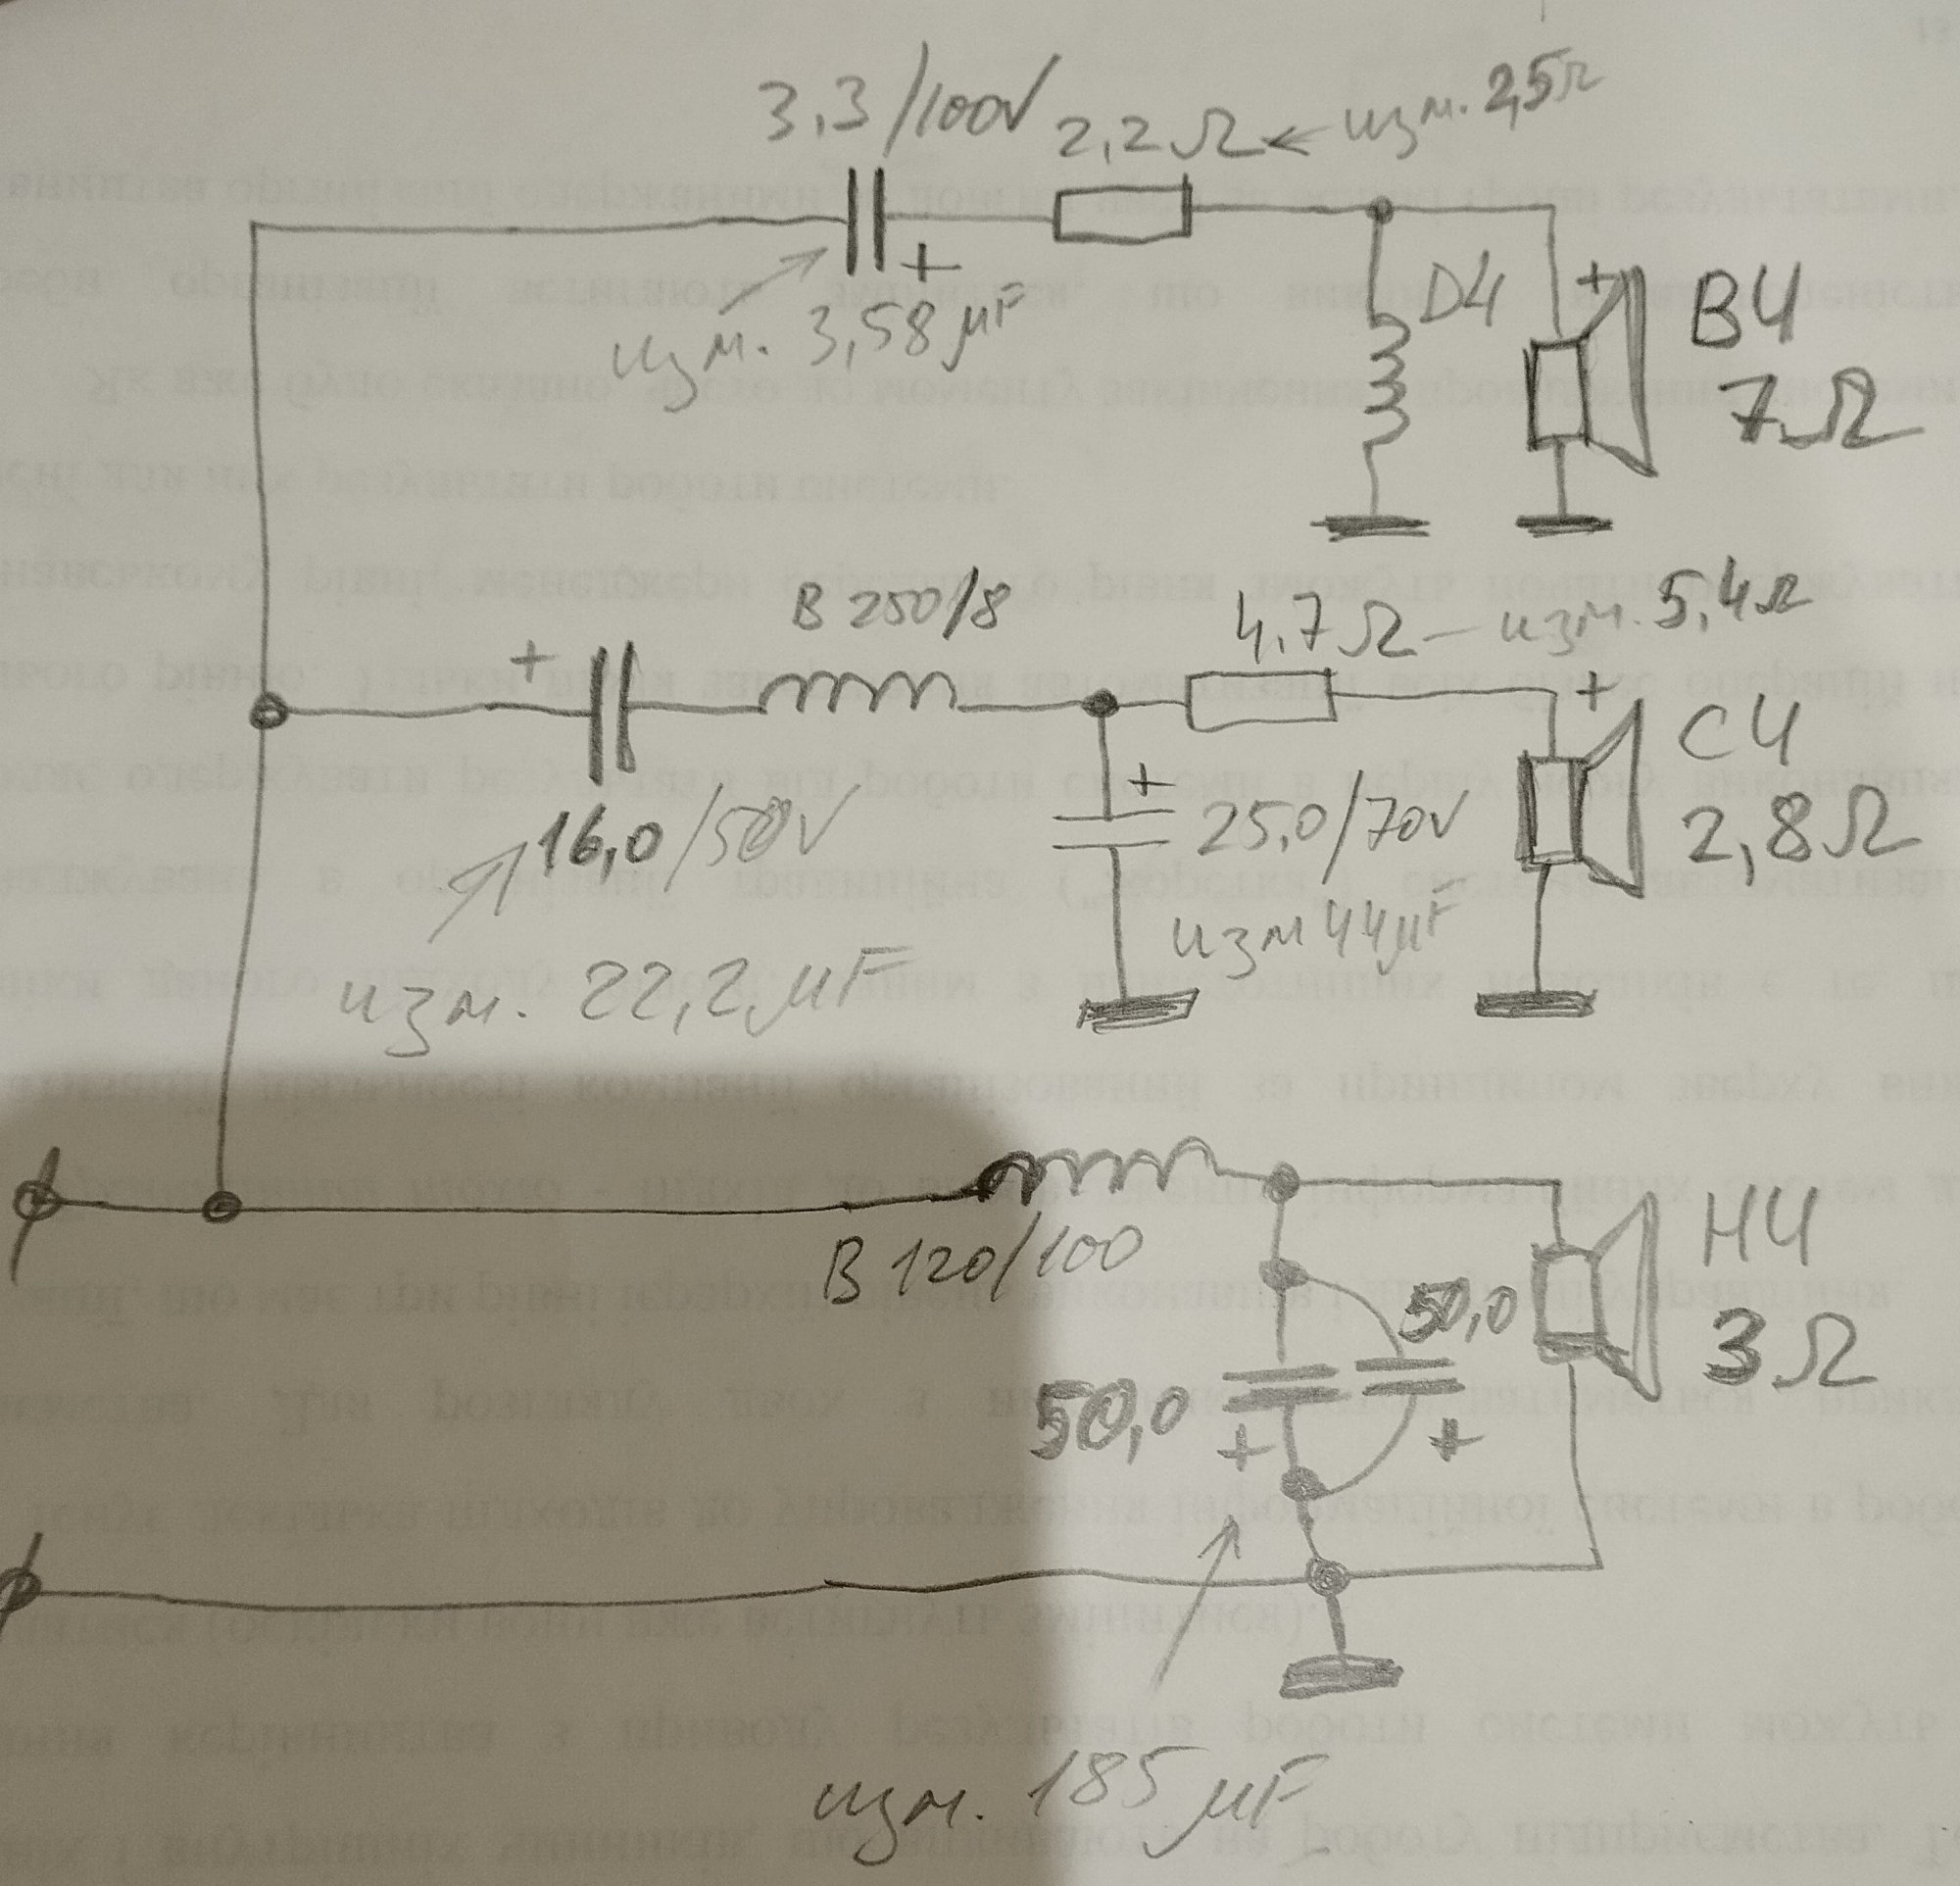 3,3/100V
2,2Ω ← изм. 2,5Ω
+
изм. 3,58 µF
D4
+
ВЧ
7Ω
B 250/8
4,7Ω — изм. 5,4Ω
+
+
СЧ
2,8Ω
16,0/50V
+
25,0/70V
изм 44µF
изм. 22,2 µF
B 120/100
НЧ
3Ω
50,0
50,0
+
+
изм. 185 µF